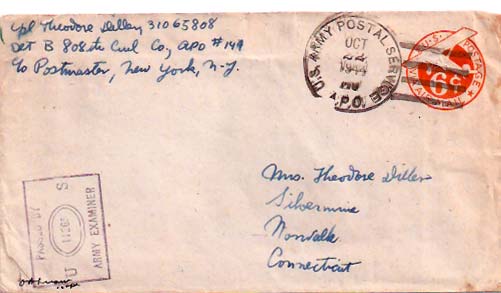 Cpl Theodore Diller, 31065808
Det B 808th Civil Co, APO #149
c/o Postmaster, New York, N.Y.
U.S. ARMY POSTAL SERVICE
OCT
22
1944
A.P.O.
U.S. POSTAGE
6¢
AIR MAIL
Mrs. Theodore Diller
Silvermine
Norwalk
Connecticut
PASSED BY
U S
ARMY EXAMINER